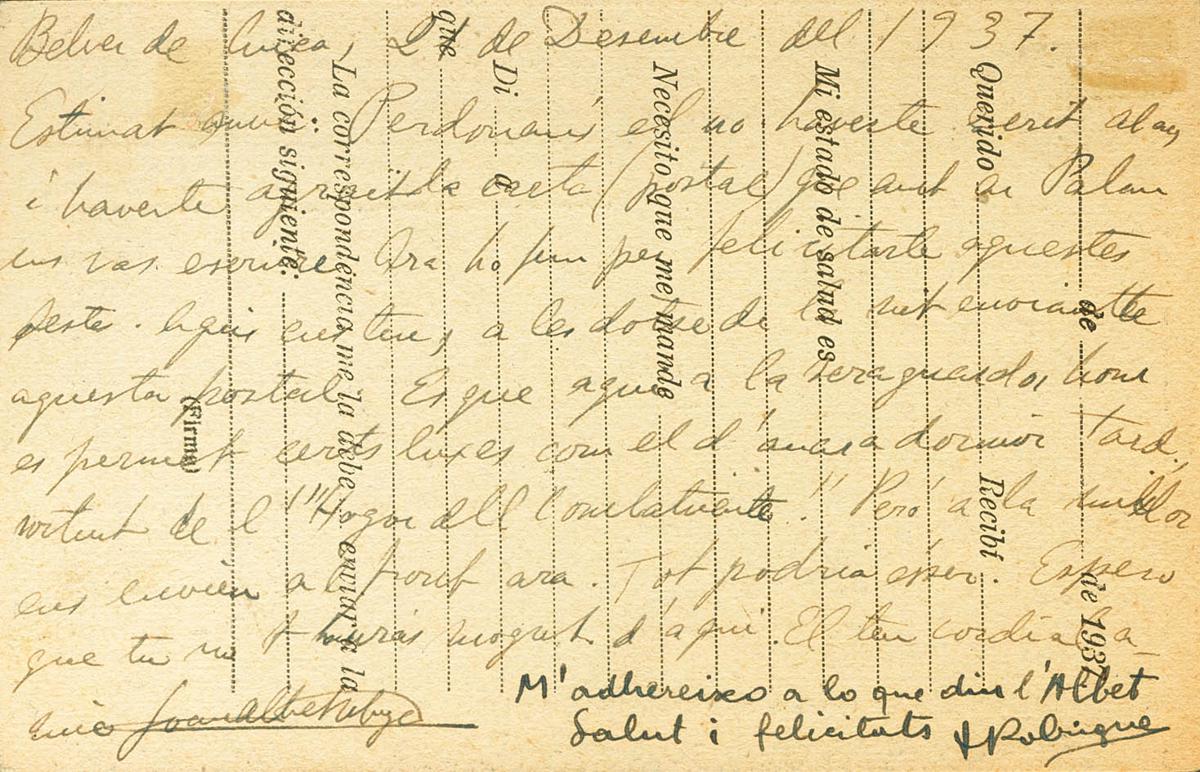 Belver de Cinca, 24 de Desembre del 1937.
Estimat amic: Perdonaràs el no haverte escrit abans
i haverte agrait la carta (postal) que
ens vas escriure. Ara ho fem per felicitarte aquestes
festes. Aquí ens tens, a les dotze de la nit enviantte
aquesta postal. Es que aquí a la reraguarda, hom
es permet certs luxes com el d'anar a dormir tard,
sortint de l'"Hogar del Combatiente". Però a la millor
ens envien al front ara. Tot podria ésser. Espero
que tu no t'hauràs mogut d'aquí. El teu cordial a-
mic Joan Albet
M'adhereixo a lo que diu l'Albet
Salut i felicitats
de
de 1937
Querido
Recibí
Mi estado de salud es
Necesito que me mande
Di a
que
La correspondencia me la debe Vo enviar a la
dirección siguiente:
(Firma)